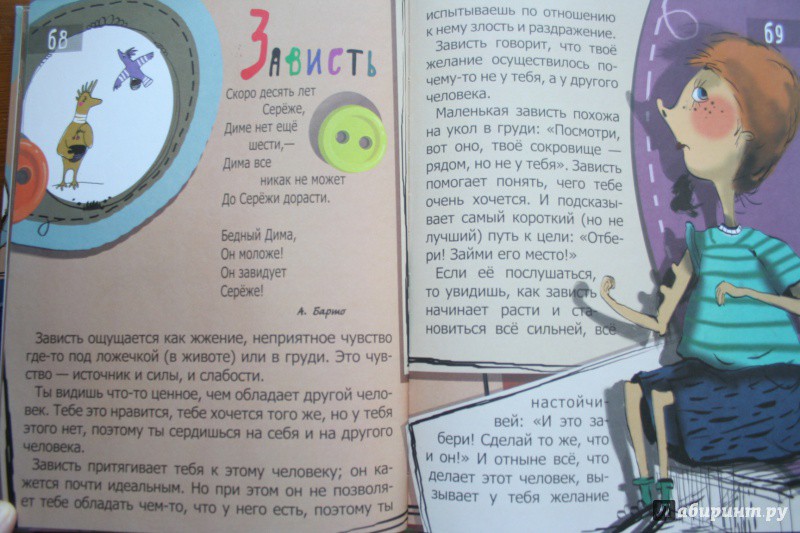 68
Зависть
Скоро десять лет
Серёже,
Диме нет ещё
шести,—
Дима все
никак не может
До Серёжи дорасти.
Бедный Дима,
Он моложе!
Он завидует
Серёже!
А. Барто
Зависть ощущается как жжение, неприятное чувство
где-то под ложечкой (в животе) или в груди. Это чув-
ство — источник и силы, и слабости.
Ты видишь что-то ценное, чем обладает другой чело-
век. Тебе это нравится, тебе хочется того же, но у тебя
этого нет, поэтому ты сердишься на себя и на другого
человека.
Зависть притягивает тебя к этому человеку; он ка-
жется почти идеальным. Но при этом он не позволя-
ет тебе обладать чем-то, что у него есть, поэтому ты
69
испытываешь по отношению
к нему злость и раздражение.
Зависть говорит, что твоё
желание осуществилось по-
чему-то не у тебя, а у другого
человека.
Маленькая зависть похожа
на укол в груди: «Посмотри,
вот оно, твоё сокровище —
рядом, но не у тебя». Зависть
помогает понять, чего тебе
очень хочется. И подсказы-
вает самый короткий (но не
лучший) путь к цели: «Отбе-
ри! Займи его место!»
Если её послушаться,
то увидишь, как зависть
начинает расти и ста-
новиться всё сильней, все
настойчи-
вей: «И это за-
бери! Сделай то же, что
и он!» И отныне всё, что
делает этот человек, вы-
зывает у тебя желание
Лабиринт.ру